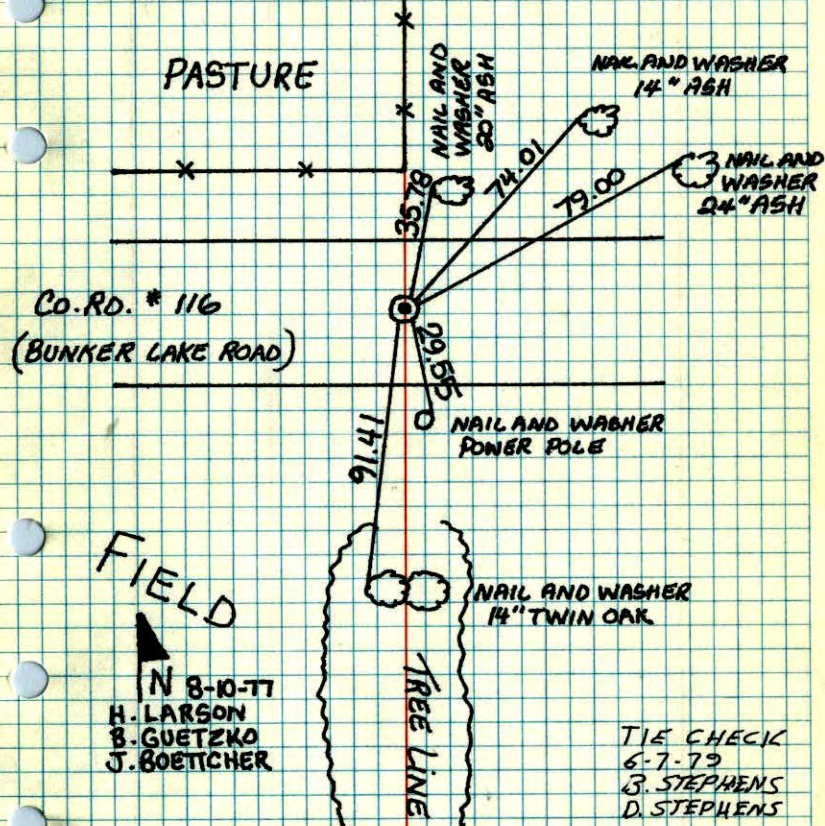 PASTURE
NAIL AND
WASHER
20" ASH
NAIL AND WASHER
14" ASH
NAIL AND
WASHER
24" ASH
35.78
74.01
79.00
CO. RD. # 116
(BUNKER LAKE ROAD)
29.55
NAIL AND WASHER
POWER POLE
91.41
FIELD
NAIL AND WASHER
14" TWIN OAK
N 8-10-77
H. LARSON
B. GUETZKO
J. BOETTCHER
TREE LINE
TIE CHECK
6-7-79
B. STEPHENS
D. STEPHENS